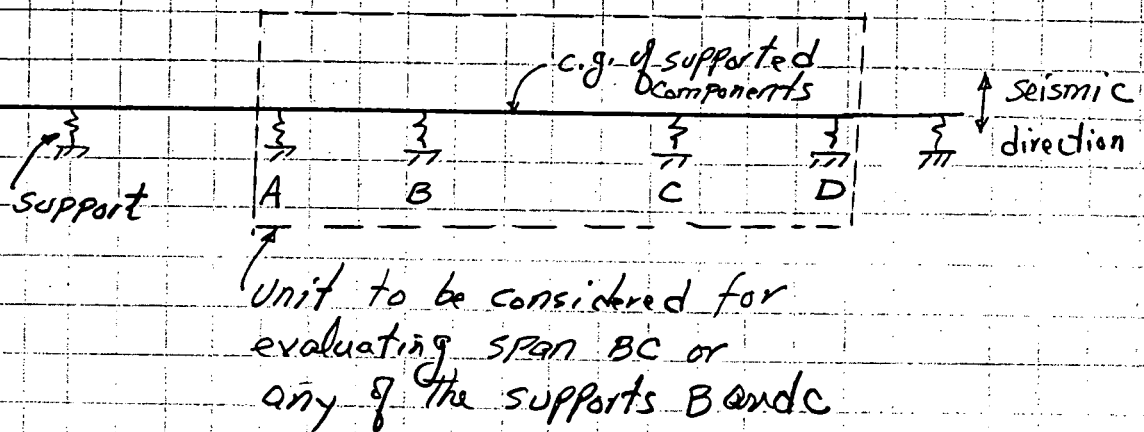 c.g. of supported
components
seismic
direction
support
A
B
C
D
Unit to be considered for
evaluating span BC or
any of the supports B and C